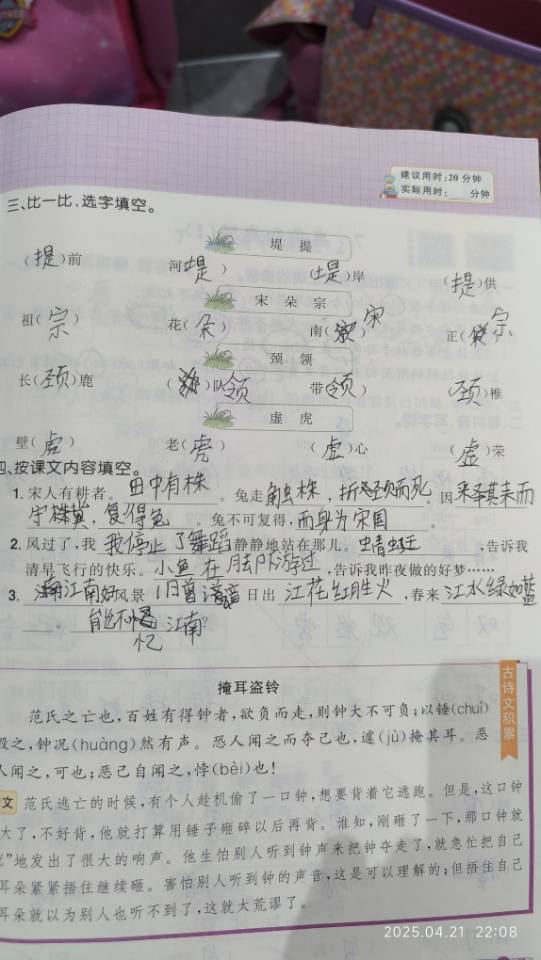 建议用时:20 分钟
实际用时:____分钟
三、比一比,选字填空。
堤 提
(提)前 河(堤) (堤)岸 (提)供
宋 朵 宗
祖(宗) 花(朵) 南(宋) 正(宗)
颈 领
长(颈)鹿 ( )队领 带(领) (颈)椎
虚 虎
壁(虎) 老(虎) (虚)心 (虚)荣
四、按课文内容填空。
1. 宋人有耕者。田中有株。兔走触株,折颈而死。因释其耒而
守株,复得兔。兔不可复得,而身为宋国。
2. 风过了,我我停止了舞蹈静静地站在那儿。蜻蜓,告诉我
清早飞行的快乐。小鱼在脚下游过,告诉我昨夜做的好梦……
3. 江南好风景旧曾谙 日出江花红胜火,春来江水绿如蓝
。能不忆江南?
古诗文积累
掩耳盗铃
范氏之亡也,百姓有得钟者,欲负而走,则钟大不可负;以锤(chuí)
毁之,钟况(huàng)然有声。恐人闻之而夺己也,遽(jù)掩其耳。恶
人闻之,可也;恶己自闻之,悖(bèi)也!
文 范氏逃亡的时候,有个人趁机偷了一口钟,想要背着它逃跑。但是,这口钟
大了,不好背,他就打算用锤子砸碎以后再背。谁知,刚砸了一下,那口钟就
”地发出了很大的响声。他生怕别人听到钟声来把钟夺走了,就急忙把自己
耳朵紧紧捂住继续砸。害怕别人听到钟的声音,这是可以理解的;但捂住自己
耳朵就以为别人也听不到了,这就太荒谬了。
2025.04.21 22:08